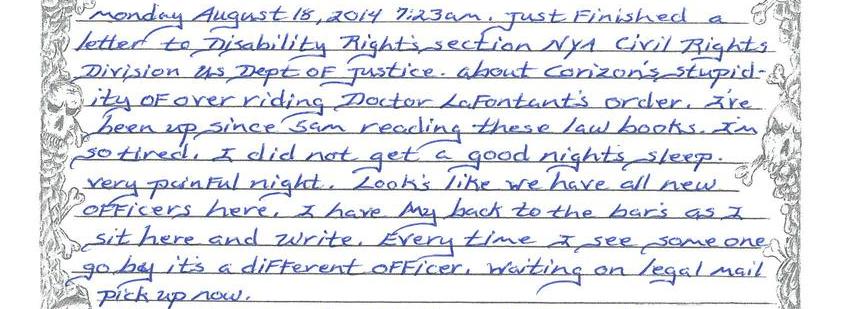 monday August 18, 2014 7:23am. Just Finished a
letter to Disability Rights section NYA Civil Rights
Division us Dept OF Justice. about Corizon's stupid-
ity OF over riding Doctor LaFontant's order. I've
been up since 5am reading these law books. I'm
so tired. I did not get a good nights sleep.
very painFul night. Look's like we have all new
oFFicers here. I have My back to the bar's as I
sit here and write. Every time I see some one
go by it's a diFFerent oFFicer. Waiting on legal mail
pick up now.